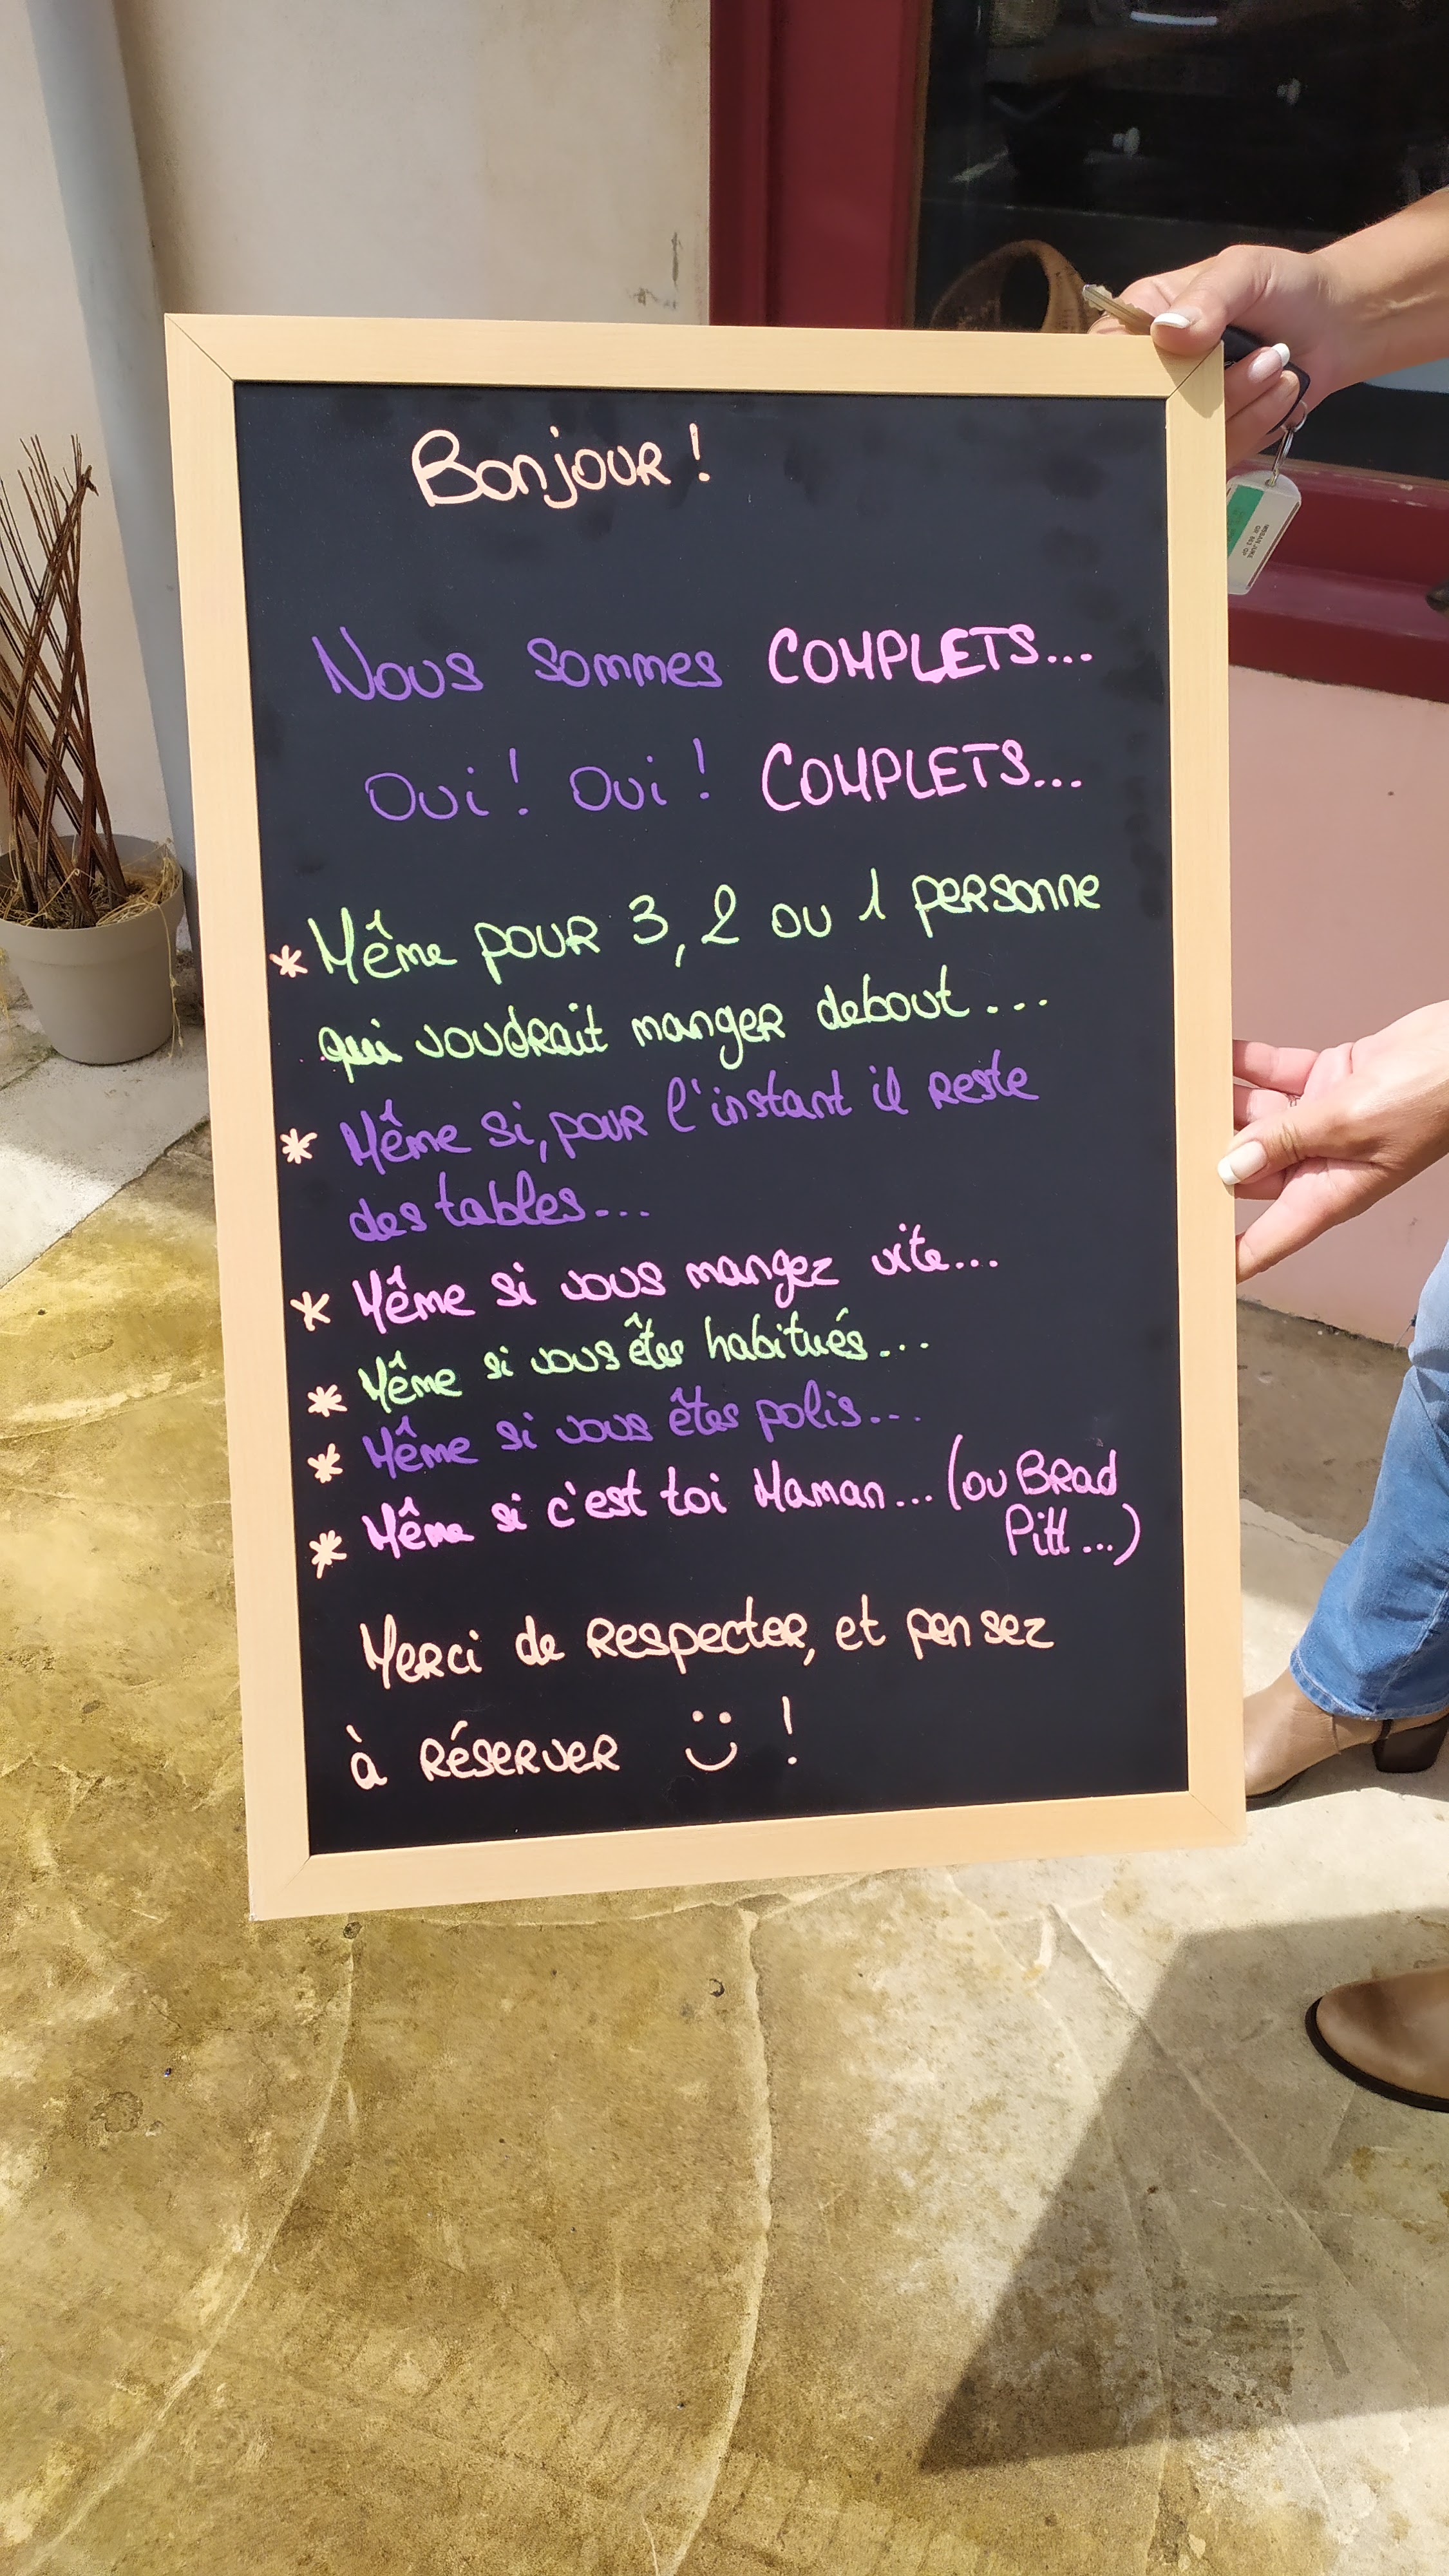 Bonjour !
Nous sommes COMPLETS...
Oui ! Oui ! COMPLETS...
* Même pour 3, 2 ou 1 personne
qui voudrait manger debout...
* Même si, pour l'instant il reste
des tables...
* Même si vous mangez vite...
* Même si vous êtes habitués...
* Même si vous êtes polis...
* Même si c'est toi Maman... (ou Brad
Pitt...)
Merci de respecter, et pensez
à réserver !